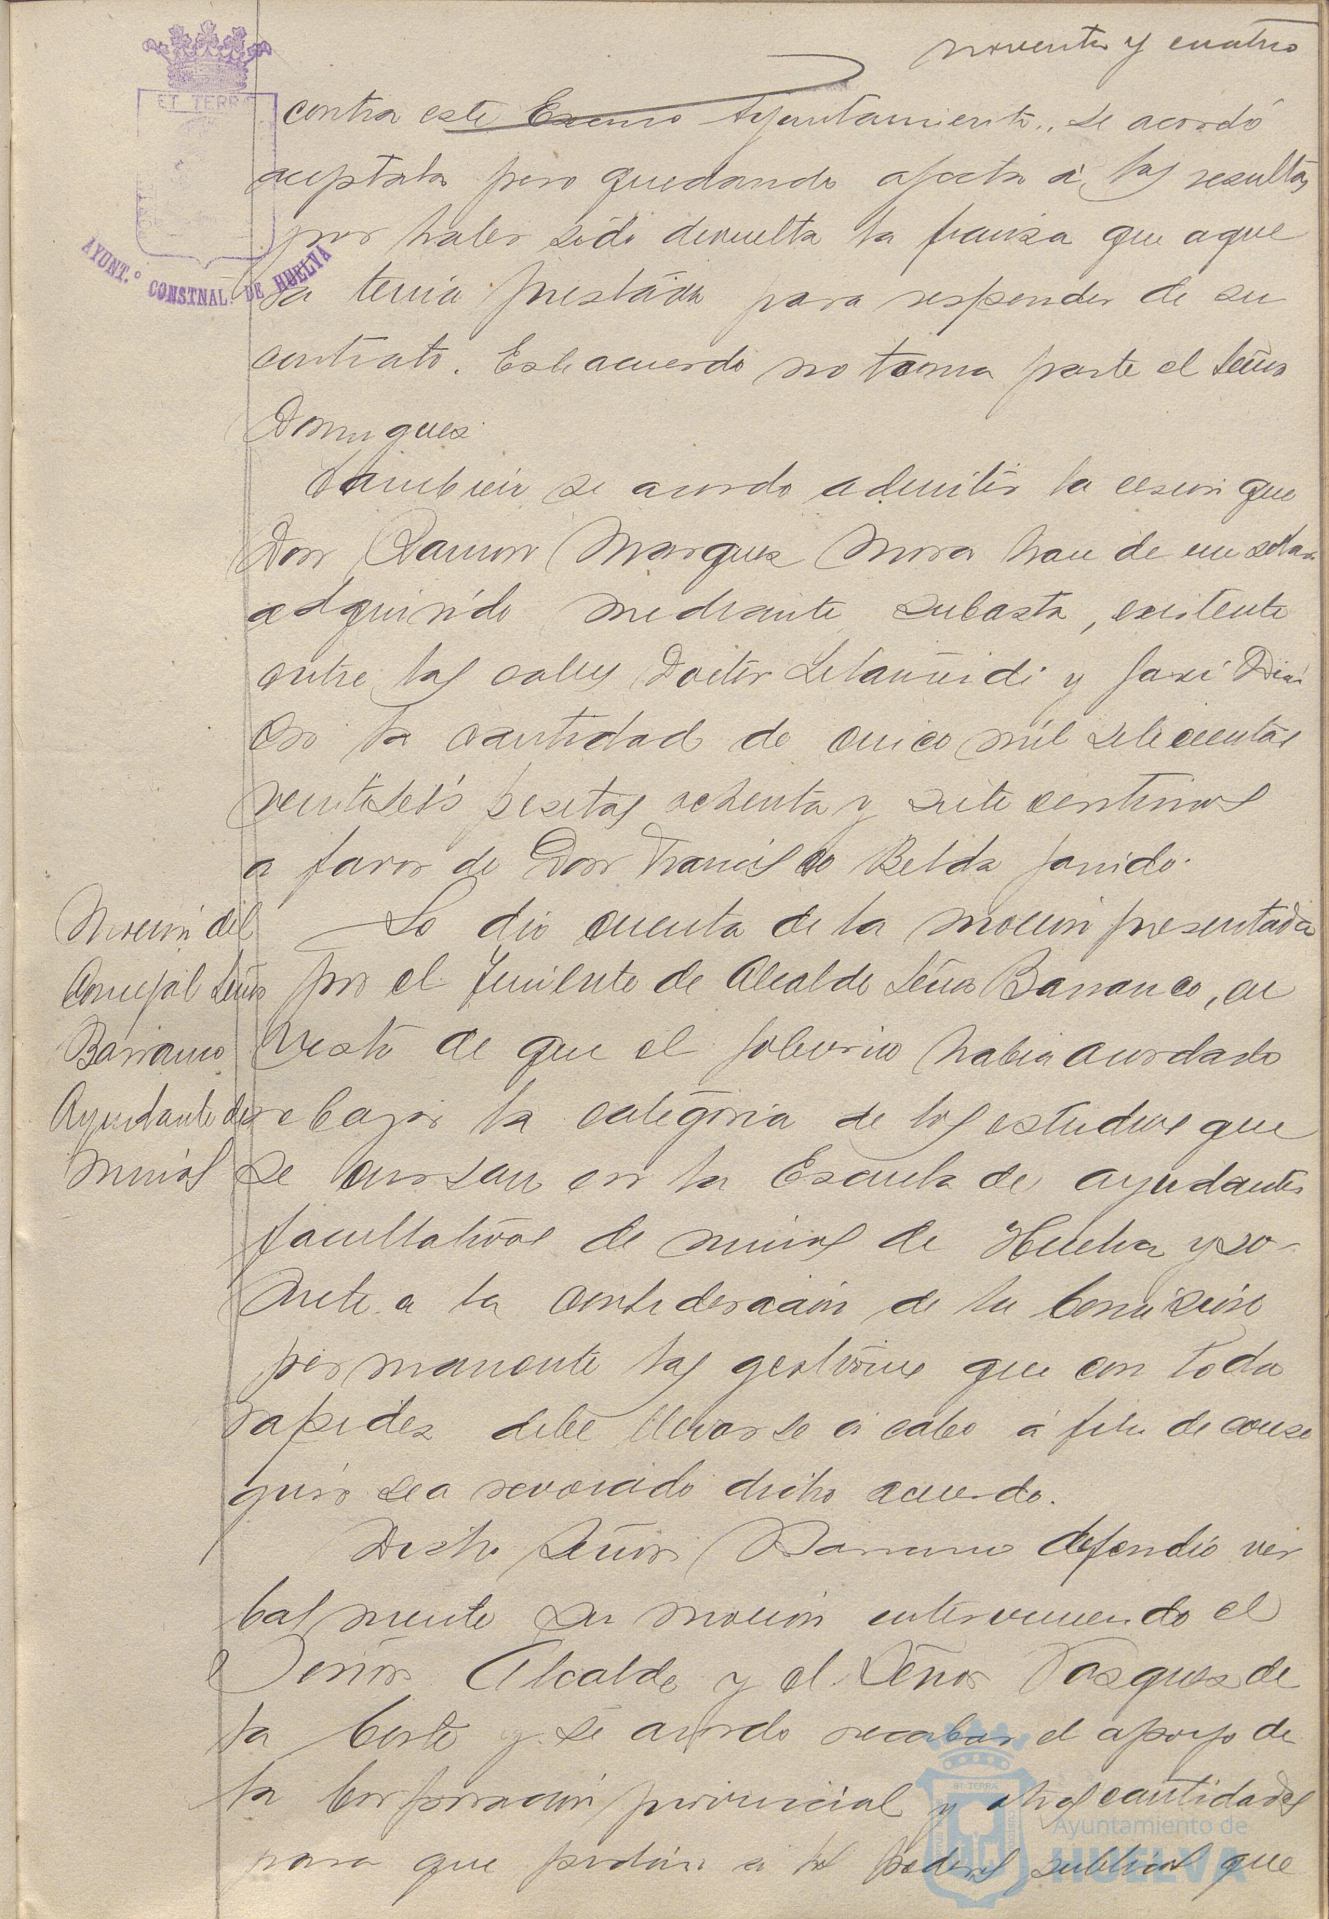 noventa y cuatro
ET TERRA
AYUNT.º CONSTNAL. DE HUELVA
contra este Excmo Ayuntamiento, se acordó
aceptarla pero quedando afecta á las resultas
por haber sido devuelta la fianza que aque
lla tenia prestada para responder de su
contrato. Este acuerdo no toma parte el Señor
Dominguez.
Tambien se acordo admitir la cesion que
Don Ramon Marquez Mora hace de un solar
adquirido mediante subasta, existente
entre las calles Doctor Letamendi y José
en la cantidad de cinco mil setecientas
veintiseis pesetas ochenta y siete centimos
a favor de Don Francisco Belda
Moción del
Concejal Señor
Barranco
Ayudante de
minas
Se dió cuenta de la moción presentada
por el Teniente de Alcalde Señor Barranco, en
vista de que el Gobierno habia acordado
rebajar la categoria de los estudios que
se cursan en la Escuela de ayudantes
facultativos de minas de Huelva y so-
mete a la consideración de la Comisión
permanente las gestiones que con toda
rapidez debe llevarse á cabo á fin de conse
guir sea revocado dicho acuerdo.
Dicho Señor Barranco defendió ver
balmente su moción interviniendo el
Señor Alcalde y el Señor Vazquez de
la Corte y se acordo recabar el apoyo de
la Corporación provincial y otras entidades
para que pidan a los poderes publicos que
ET TERRA
Ayuntamiento de
HUELVA